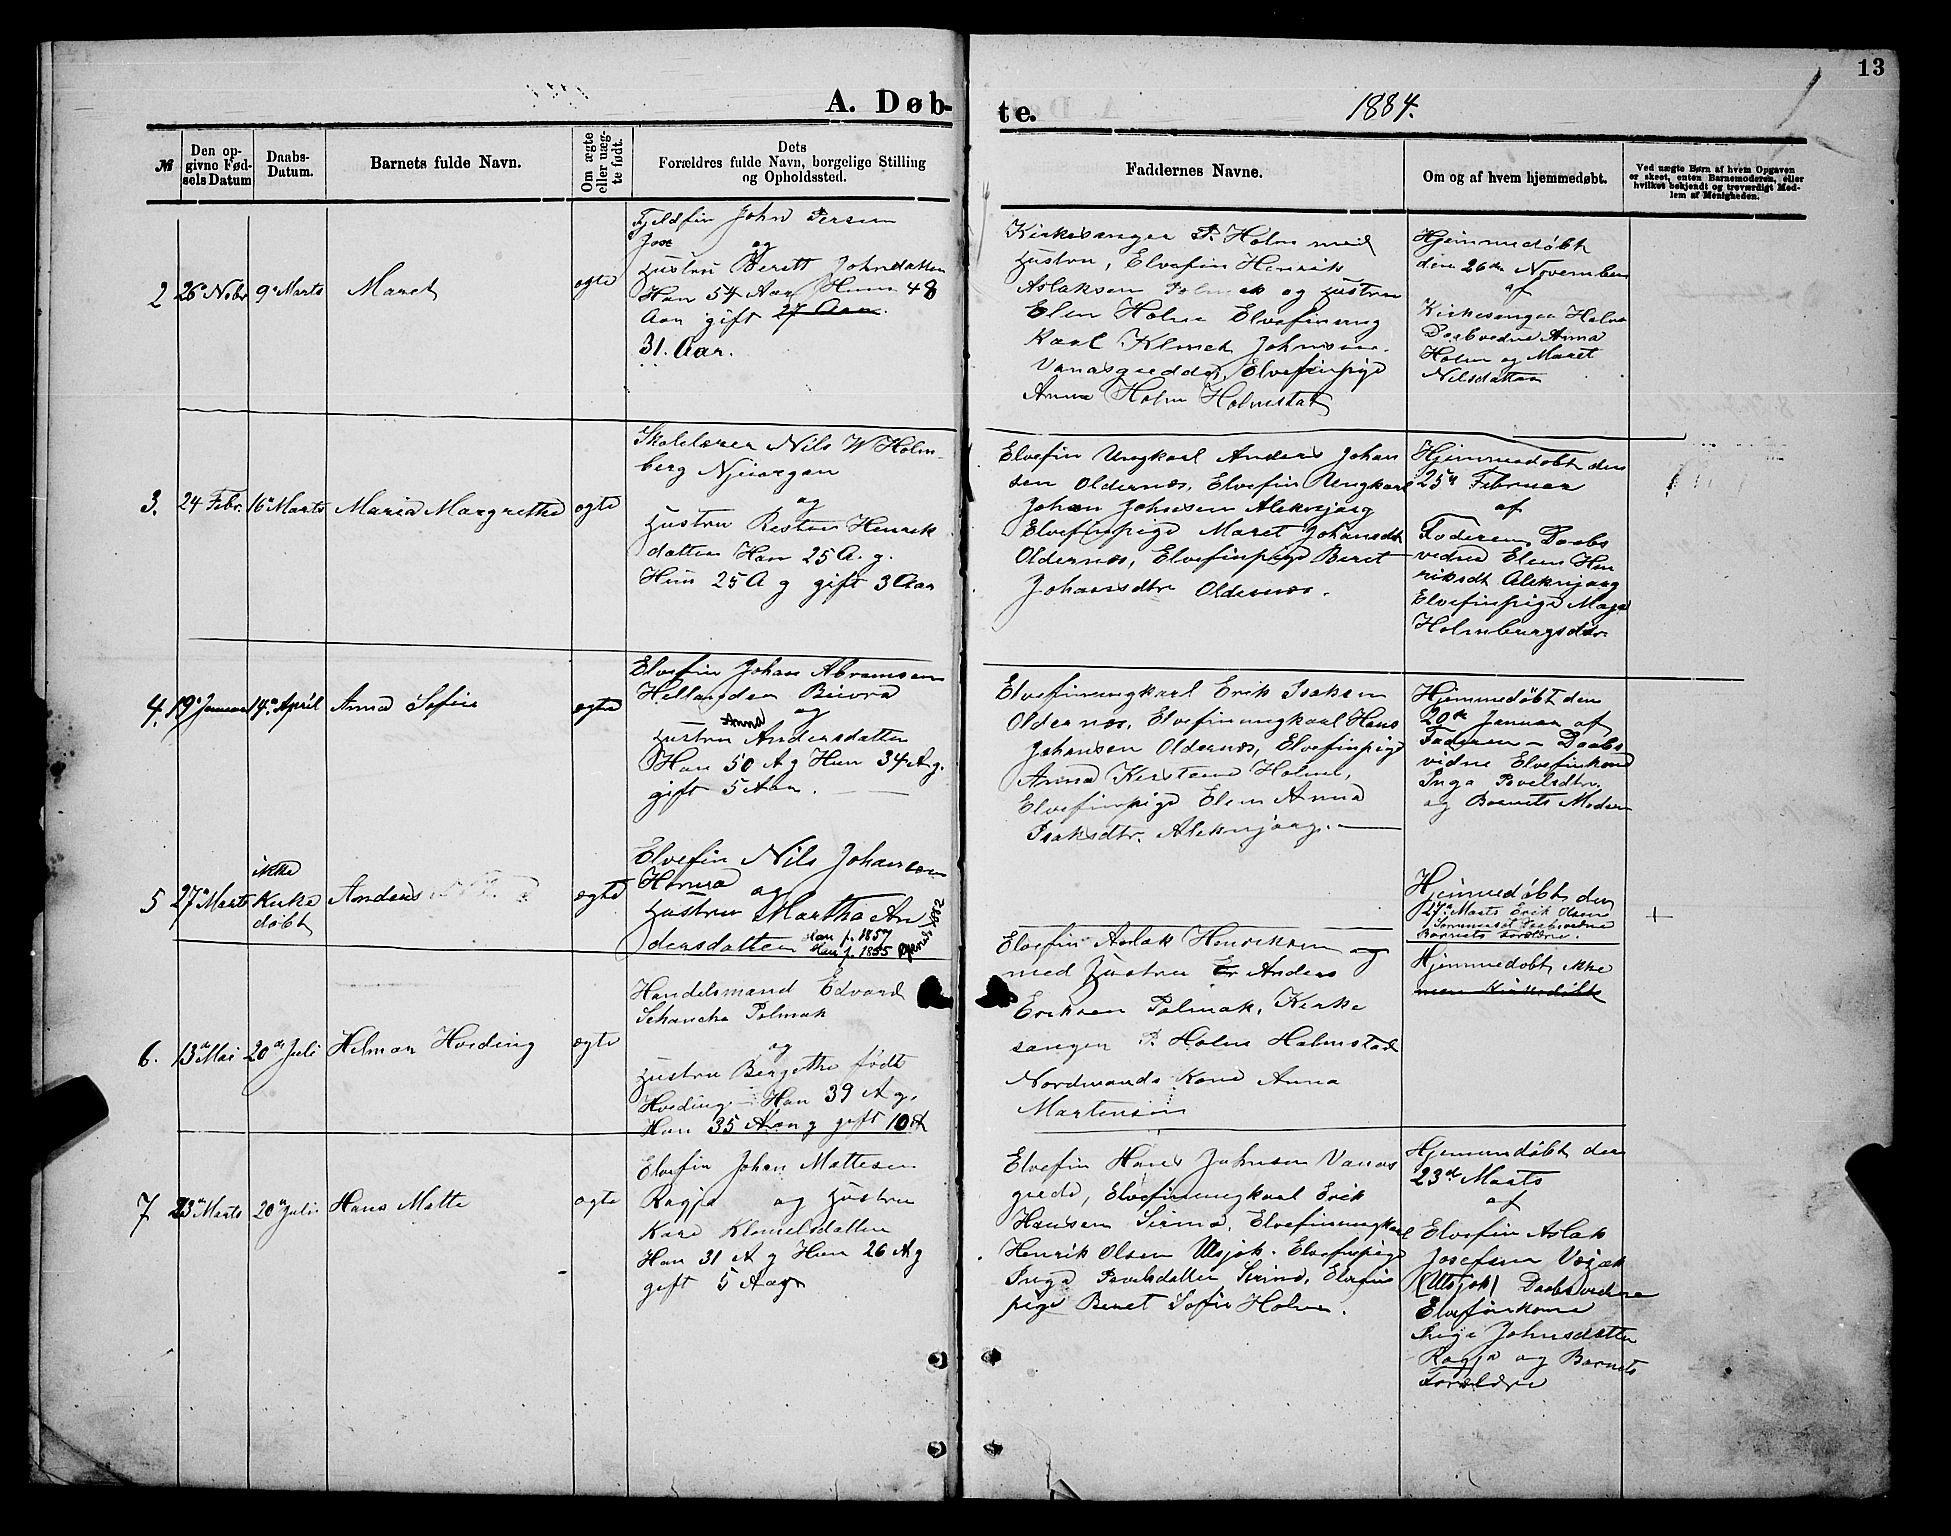 13
A. Døb-
te.
1884.
№
Den op-
givne Fød-
selsDatum
Daabs-
Datum.
Barnets fulde Navn.
Om ægte
eller uæg-
te født.
Dets
Forældres fulde Navn, borgelige Stilling
og Opholdssted.
Faddernes Navne.
Om og af hvem hjemmedøbt.
Ved uægte Børn af hvem Opgaven
er skeet, enten Barnemoderen, eller
hvilket bekjendt og troværdigt Med-
lem af Menigheden.
2
26 Nobr
9 Marts
Maret
ægte
Fjeldfin John Persen
og
Hustru Beret Johnsdatter
Han 54 Aar Hun 48
Aar gift 27 Aar.
31. Aar.
Kirkesanger P. Holm med
Hustru, Elvefin Henrik
Aslaksen Polmak og Hustru
Elen Holm Elvefinung
karl Klemet Johnsen
Vanasgiedde, Elvefinpige
Anna Holm Holmstad
Hjemmedøbt
den 26de November
af
Kirkesanger Holm
Daabvidne Anna
Holm og Maret
Nilsdatter
3.
24 Febr.
16 Marts
Maria Margrethe
ægte
Skolelærer Nils W Holm-
berg Njuorgan
og
Hustru Kesten Henrik
datter Han 25 A. g.
Hun 25 A g gift 3 Aar
Elvefin Ungkarl Anders Johan
sen Oldernæs, Elvefin Ungkarl
Johan Johnsen Aleknjarg
Elvefinpige Maret Johansdt
Oldernæs, Elvefinpige Beret
Johansdtr Oldernæs.
Hjemmedøbt den
25de Februar
af
Faderen Daabs
vidne Elen Hen
riksdt Aleknjarg
Elvefinpige Maja
Holmbergsdtr.
4.
19 Januar
14de April
Anna Sofie
ægte
Elvefin Johan Abramsen
Hillagden Bievra
og
Hustru Anna Andersdatter
Han 50 A g Hun 34 A g.
gift 5 Aar.
Elvefinungkarl Erik Isaksen
Oldernæs, Elvefinungkarl Hans
Johansen Oldernæs, Elvefinpige
Anna Kirstene Holm,
Elvefinpige Elen Anna
Isaksdtr. Aleknjarg.
Hjemmedøbt den
20de Januar af
Faderen – Daabs
vidne Elvefinkone
Inga Povelsdtr.
og Barnets Moder
5
27de Marts
ikke
Kirke
døbt
Anders
ægte
Elvefin Nils Johansen
og
Hustru Martha An
dersdatter Han f. 1857
Hun f. 1855
1882
Hjemmedøbt den
27de Marts Erik Olsen
Daabsvidne
Barnets Forældre.
+
6.
13de Mai
20de Juli
Helmer Hveding
ægte
Handelsmand Edvard
Schanche Polmak
og
Hustru Bergethe født
Hveding – Han 39 A g.
Hun 35 Aar g gift 10 A
Elvefin Aslak Henriksen og
med Hustru Er Anders
Eriksen Polmak, Kirke
sanger P. Holm Holmstad
Nordmands Kone Anna
Martensen
Hjemmedøbt ikke
men Kirkedøbt
7
23de Marts
20de Juli.
Hans Matte
ægte
Elvefin Johan Mattesen
Ragja og Hustru
Kare Klemetsdatter
Han 31 A g Hun 26 A g
gift 5 Aar
Elvefin Hans Johnsen Vanas
giede, Elvefinungkarl Erik
Hansen Sirma, Elvefinungkarl
Henrik Olsen Utsjok. Elvefinpige
Inga Povelsdatter Sirma, Elvefin
pige Beret Sofie Holm.
Hjemmedøbt den
23de Marts
af
Elvefin Aslak
Josefsen
(Utsjok) Daabsvidne
Elvefinkone
Inga Johnsdatter
Ragja og Barnets
Forældre